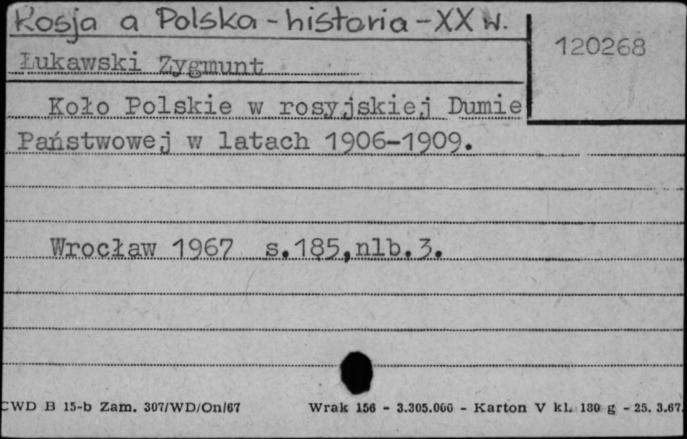 Rosja a Polska - historia - XX w.
120268
Łukawski Zygmunt
Koło Polskie w rosyjskiej Dumie
Państwowej w latach 1906-1909.
Wrocław 1967 s.185,nlb.3.
CWD B 15-b Zam. 307/WD/On/67 Wrak 156 - 3.305.000 - Karton V kl. 180 g - 25. 3.67.